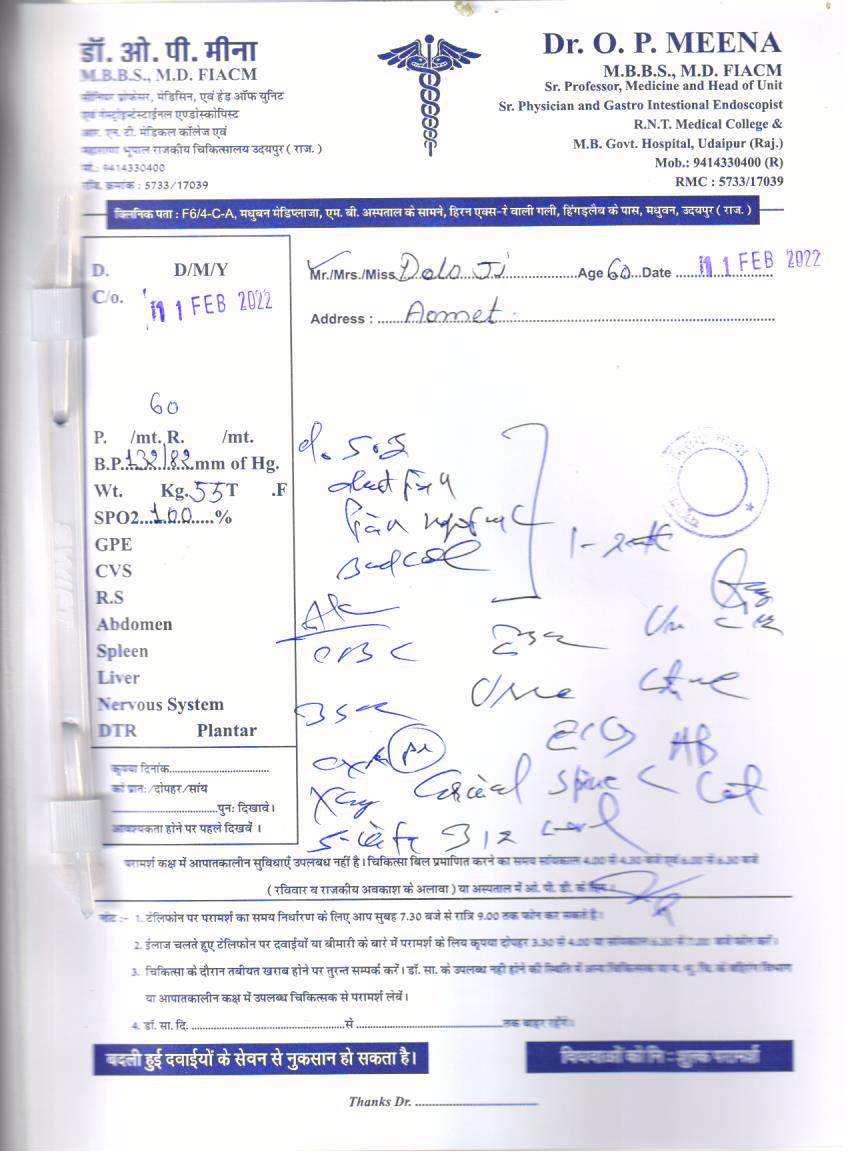 डॉ. ओ. पी. मीना
M.B.B.S., M.D. FIACM
सीनियर प्रोफेसर, मेडिसिन, एवं हेड ऑफ युनिट
एवं गेस्ट्रोइन्टेस्टाईनल एण्डोस्कोपिस्ट
आर. एन. टी. मेडिकल कॉलेज एवं
महाराणा भूपाल राजकीय चिकित्सालय उदयपुर ( राज. )
मो.: 9414330400
रजि. क्रमांक : 5733/17039
Dr. O. P. MEENA
M.B.B.S., M.D. FIACM
Sr. Professor, Medicine and Head of Unit
Sr. Physician and Gastro Intestional Endoscopist
R.N.T. Medical College &
M.B. Govt. Hospital, Udaipur (Raj.)
Mob.: 9414330400 (R)
RMC : 5733/17039
क्लिनिक पता : F6/4-C-A, मधुबन मेडिप्लाजा, एम. बी. अस्पताल के सामने, हिरन एक्स-रे वाली गली, हिंगड़लैब के पास, मधुवन, उदयपुर ( राज. )
D. D/M/Y
C/o. 11 FEB 2022
Mr./Mrs./Miss Dolo Ji Age 60 Date 11 FEB 2022
Address : Aomet
60
P. /mt. R. /mt.
B.P. 132/82 mm of Hg.
Wt. Kg. 55 T .F
SPO2 100 %
GPE
CVS
R.S
Abdomen
Spleen
Liver
Nervous System
DTR Plantar
CBC
Urine
ECG
Xray Cervical Spine
B12
कृपया दिनांक
को प्रातः/दोपहर/सांय
पुनः दिखावें।
आवश्यकता होने पर पहले दिखवें ।
परामर्श कक्ष में आपातकालीन सुविधाएँ उपलब्ध नहीं है। चिकित्सा बिल प्रमाणित करने का समय सांयकाल 4.00 से 4.30 बजे एवं 6.00 से 6.30 बजे
( रविवार व राजकीय अवकाश के अलावा ) या अस्पताल में ओ. पी. डी. के दिन ।
नोट :- 1. टेलिफोन पर परामर्श का समय निर्धारण के लिए आप सुबह 7.30 बजे से रात्रि 9.00 तक फोन कर सकते है।
2. ईलाज चलते हुए टेलिफोन पर दवाईयों या बीमारी के बारे में परामर्श के लिय कृपया दोपहर 3.30 से 4.00 या सांयकाल 6.30 से 7.00 बजे फोन करें।
3. चिकित्सा के दौरान तबीयत खराब होने पर तुरन्त सम्पर्क करें। डॉ. सा. के उपलब्ध नही होने की स्थिति में अन्य चिकित्सक या म. भू. चि. के बहिरंग विभाग
या आपातकालीन कक्ष में उपलब्ध चिकित्सक से परामर्श लेवें।
4. डॉ. सा. दि. से तक बाहर रहेंगे।
बदली हुई दवाईयों के सेवन से नुकसान हो सकता है।
विधवाओं को नि : शुल्क परामर्श
Thanks Dr.